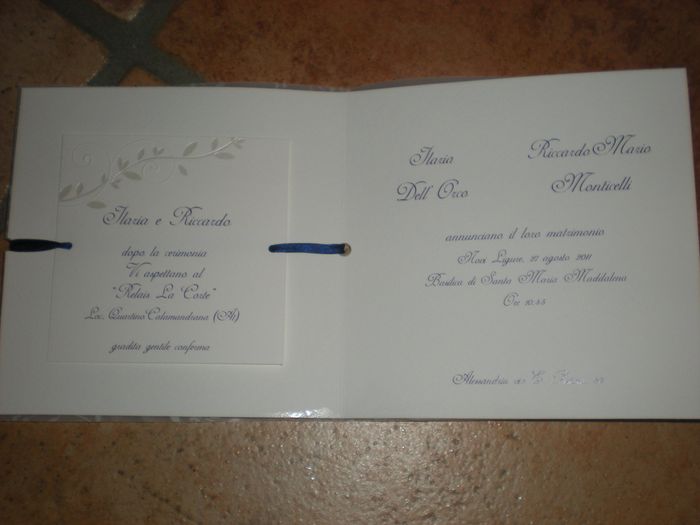 Ilaria e Riccardo
dopo la cerimonia
Vi aspettano al
"Relais La Corte"
Loc. Quartino Calamandrana (At)
gradita gentile conferma
Ilaria
Dell' Orco
Riccardo Mario
Monticelli
annunciano il loro matrimonio
Novi Ligure, 27 agosto 2011
Basilica di Santa Maria Maddalena
Ore 10,45
Alessandria